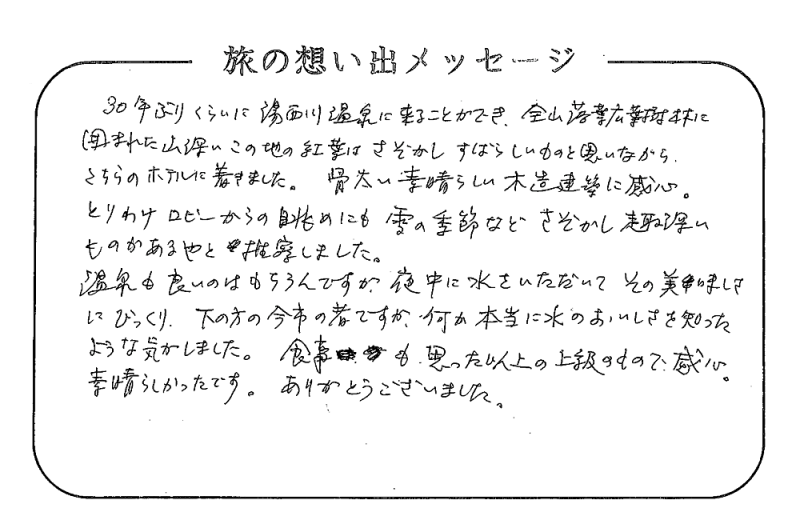 旅の想い出メッセージ
30年ぶりくらいに湯西川温泉に来ることができ、全山落葉広葉樹林に
囲まれた山深いこの地の紅葉はさぞかしすばらしいものと思いながら、
こちらのホテルに着きました。 骨太い素晴らしい木造建築に感心。
とりわけロビーからの眺めにも雪の季節などさぞかし趣深い
ものがあるやと推察しました。
温泉も良いのはもちろんですが、夜中に水をいただいてその美味しさ
にびっくり、下の方の今市の者ですが、何か本当に水のおいしさを知った
ような気がしました。 食事も思った以上の上級のもので、感心。
素晴らしかったです。 ありがとうございました。